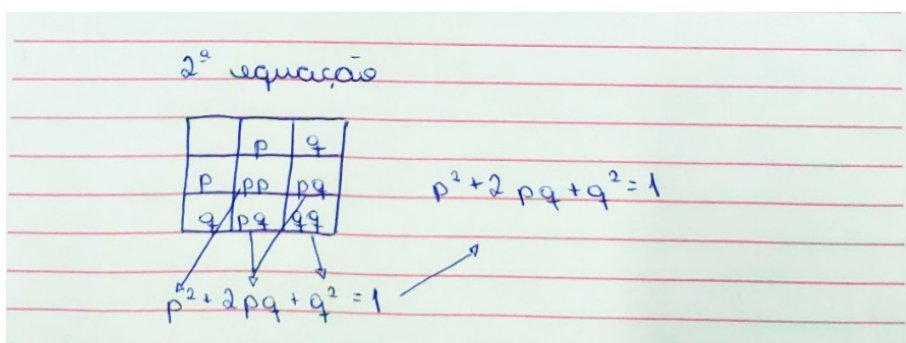 2ª equação
p q
p pp pq
q pq qq
p² + 2pq + q² = 1
p² + 2 pq + q² = 1